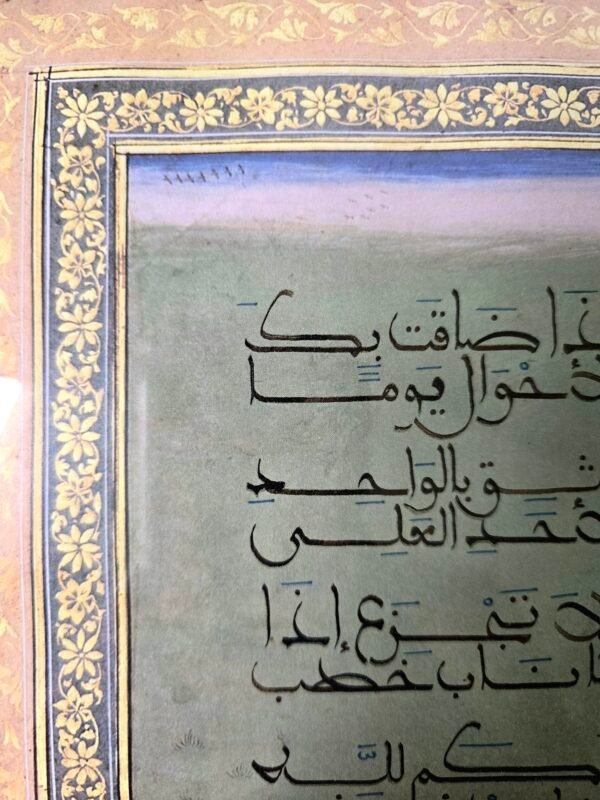 ذا ضاقت بك
لأحوال يوما
ثق بالواحد
لأحد العلي
لا تجزع إذا
ا ناب خطب
كم لله